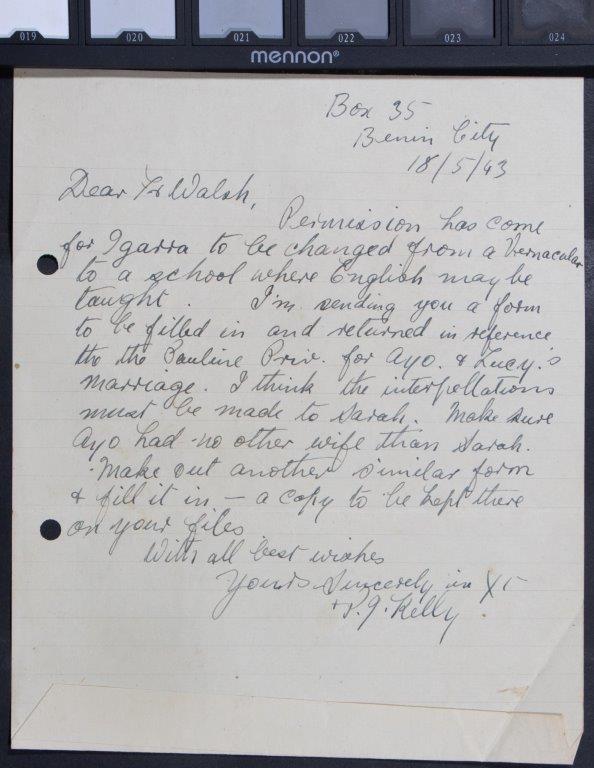 019 020 021 022 023 024
mennon®
Box 35
Benin City
18/5/43
Dear Fr Walsh,
Permission has come
for Igarra to be changed from a Vernacular
to a school where English may be
taught. I'm sending you a form
to be filled in and returned in reference
tto the Pauline Priv. for Ayo. & Lucy.'s
marriage. I think the interpellations
must be made to Sarah. Make sure
Ayo had no other wife than Sarah.
Make out another similar form
& fill it in — a copy to be kept there
on your files
With all best wishes
Yours Sincerely in Xt
+P.J. Kelly.